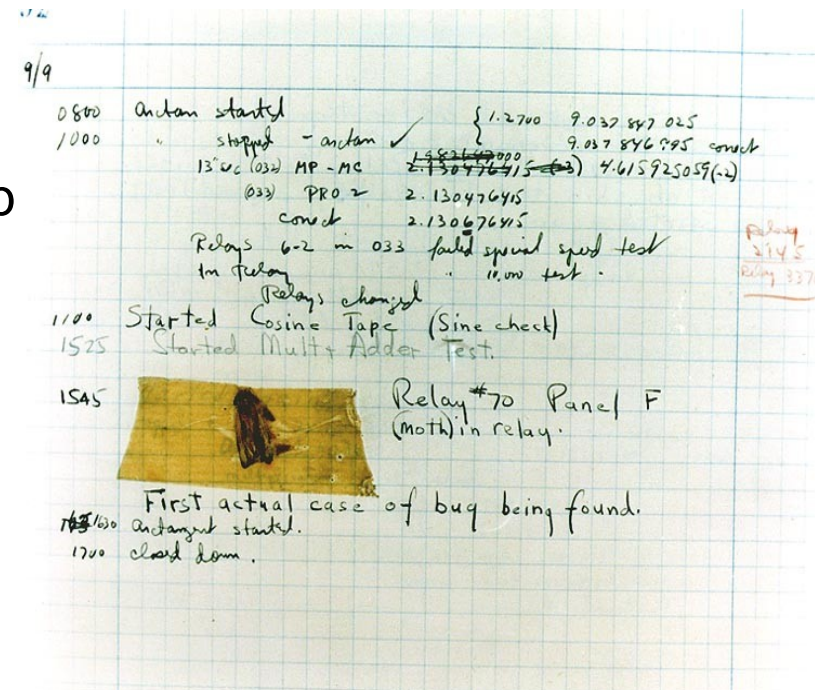 9/9
0800 Arctan started { 1.2700 9.037 847 025
1000 " stopped - arctan ✓ 9.037 846 995 conect
13" uc (032) MP - MC 2.130476415 (-3) 4.615925059(-2)
(033) PRO 2 2.130476415
conect 2.130676415
Relays 6-2 in 033 failed special speed test
In Relay " 10.000 test .
Relays changed
Relay
2145
Relay 337
1100 Started Cosine Tape (Sine check)
1525 Started Mult + Adder Test.
1545 Relay #70 Panel F
(moth) in relay.
First actual case of bug being found.
1630 arctangent started.
1700 closed down .